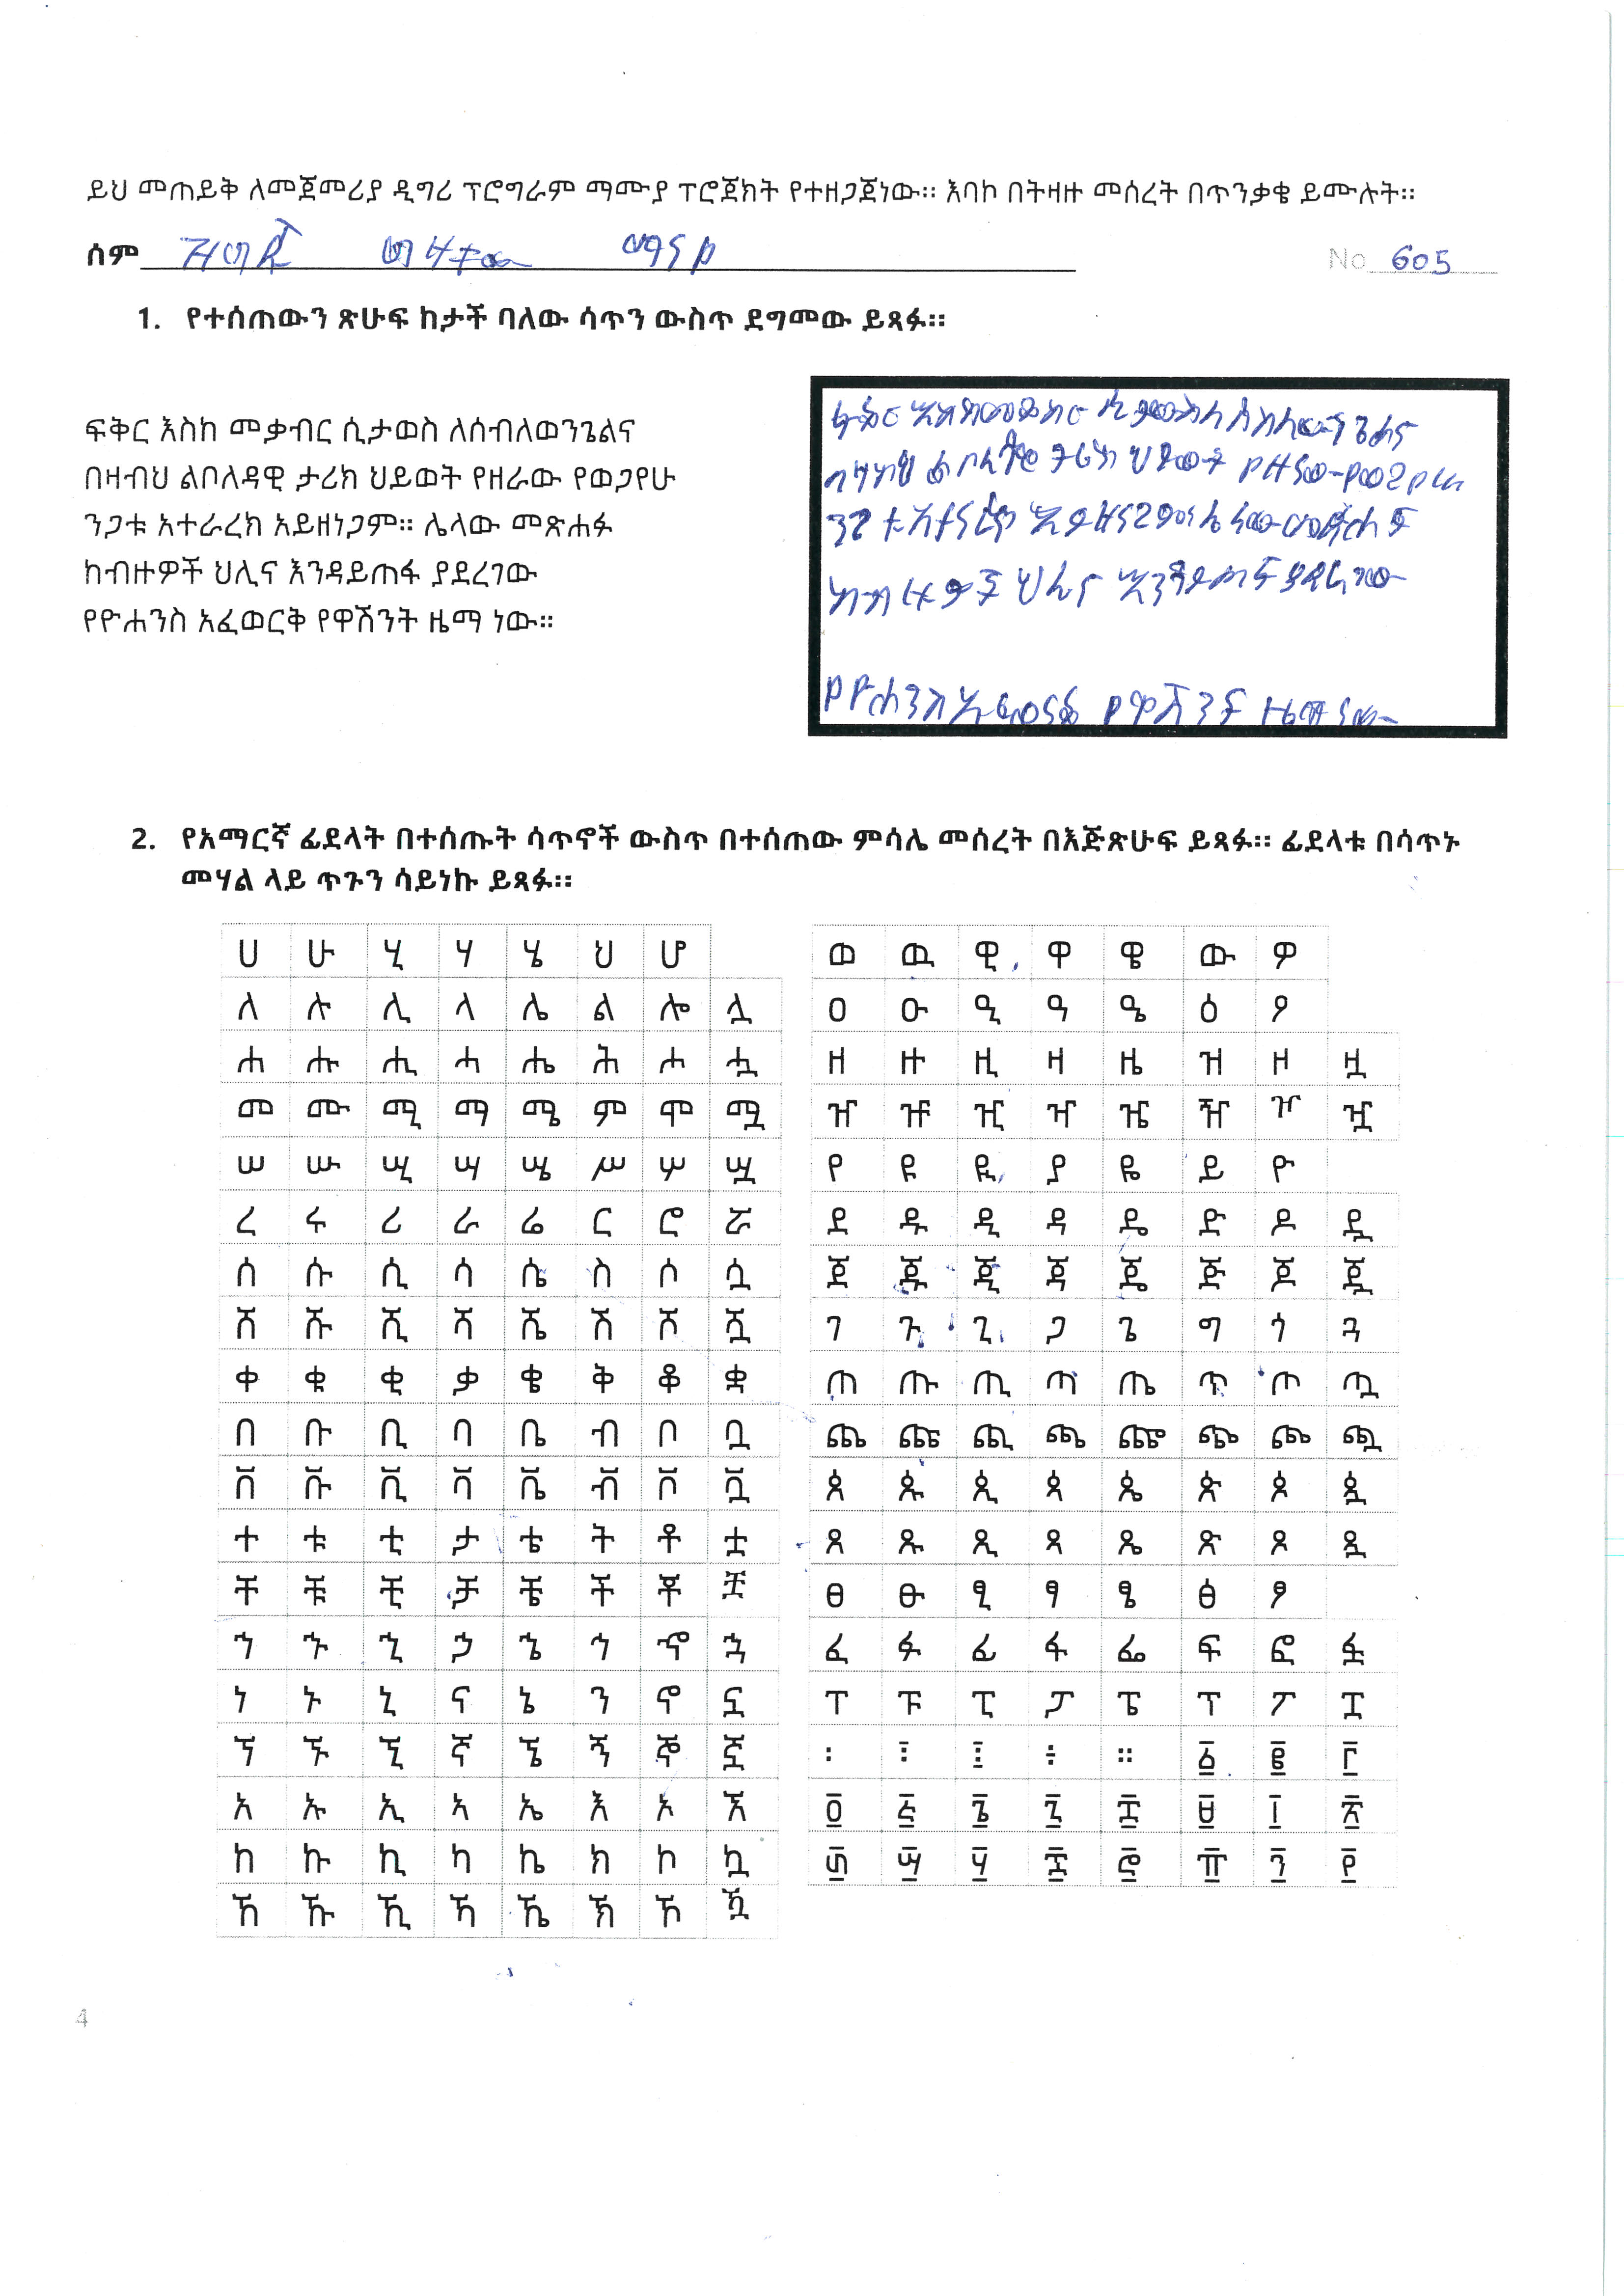 ይህ መጠይቅ ለመጀመሪያ ዲግሪ ፕሮግራም ማሙያ ፕሮጀክት የተዘጋጀነው። እባኮ በትዛዙ መሰረት በጥንቃቄ ይሙሉት።
ሰም
No 605
1. የተሰጠውን ጽሁፍ ከታች ባለው ሳጥን ውስጥ ደግመው ይጻፉ።
ፍቅር እስከ መቃብር ሲታወስ ለሰብለወንጌልና
በዛብህ ልቦለዳዊ ታሪክ ህይወት የዘራው የወጋየሁ
ንጋቱ አተራረክ አይዘነጋም። ሌላው መጽሐፉ
ከብዙዎች ህሊና እንዳይጠፋ ያደረገው
የዮሐንስ አፈወርቅ የዋሽንት ዜማ ነው።
2. የአማርኛ ፊደላት በተሰጡት ሳጥኖች ውስጥ በተሰጠው ምሳሌ መሰረት በእጅጽሁፍ ይጻፉ። ፊደላቱ በሳጥኑ
መሃል ላይ ጥጉን ሳይነኩ ይጻፉ።
ሀ ሁ ሂ ሃ ሄ ህ ሆ
ለ ሉ ሊ ላ ሌ ል ሎ ሏ
ሐ ሑ ሒ ሓ ሔ ሕ ሖ ሗ
መ ሙ ሚ ማ ሜ ም ሞ ሟ
ሠ ሡ ሢ ሣ ሤ ሥ ሦ ሧ
ረ ሩ ሪ ራ ሬ ር ሮ ሯ
ሰ ሱ ሲ ሳ ሴ ስ ሶ ሷ
ሸ ሹ ሺ ሻ ሼ ሽ ሾ ሿ
ቀ ቁ ቂ ቃ ቄ ቅ ቆ ቋ
በ ቡ ቢ ባ ቤ ብ ቦ ቧ
ቨ ቩ ቪ ቫ ቬ ቭ ቮ ቯ
ተ ቱ ቲ ታ ቴ ት ቶ ቷ
ቸ ቹ ቺ ቻ ቼ ች ቾ ቿ
ኀ ኁ ኂ ኃ ኄ ኅ ኆ ኋ
ነ ኑ ኒ ና ኔ ን ኖ ኗ
ኘ ኙ ኚ ኛ ኜ ኝ ኞ ኟ
አ ኡ ኢ ኣ ኤ እ ኦ ኧ
ከ ኩ ኪ ካ ኬ ክ ኮ ኳ
ኸ ኹ ኺ ኻ ኼ ኽ ኾ ዃ
ወ ዉ ዊ ዋ ዌ ው ዎ
ዐ ዑ ዒ ዓ ዔ ዕ ዖ
ዘ ዙ ዚ ዛ ዜ ዝ ዞ ዟ
ዠ ዡ ዢ ዣ ዤ ዥ ዦ ዧ
የ ዩ ዪ ያ ዬ ይ ዮ
ደ ዱ ዲ ዳ ዴ ድ ዶ ዷ
ጀ ጁ ጂ ጃ ጄ ጅ ጆ ጇ
ገ ጉ ጊ ጋ ጌ ግ ጎ ጓ
ጠ ጡ ጢ ጣ ጤ ጥ ጦ ጧ
ጨ ጩ ጪ ጫ ጬ ጭ ጮ ጯ
ጰ ጱ ጲ ጳ ጴ ጵ ጶ ጷ
ጸ ጹ ጺ ጻ ጼ ጽ ጾ ጿ
ፀ ፁ ፂ ፃ ፄ ፅ ፆ
ፈ ፉ ፊ ፋ ፌ ፍ ፎ ፏ
ፐ ፑ ፒ ፓ ፔ ፕ ፖ ፗ
፡ ፣ ፤ ፥ ። ፩ ፪ ፫
፬ ፭ ፮ ፯ ፰ ፱ ፲ ፳
፴ ፵ ፶ ፷ ፸ ፹ ፺ ፻
4